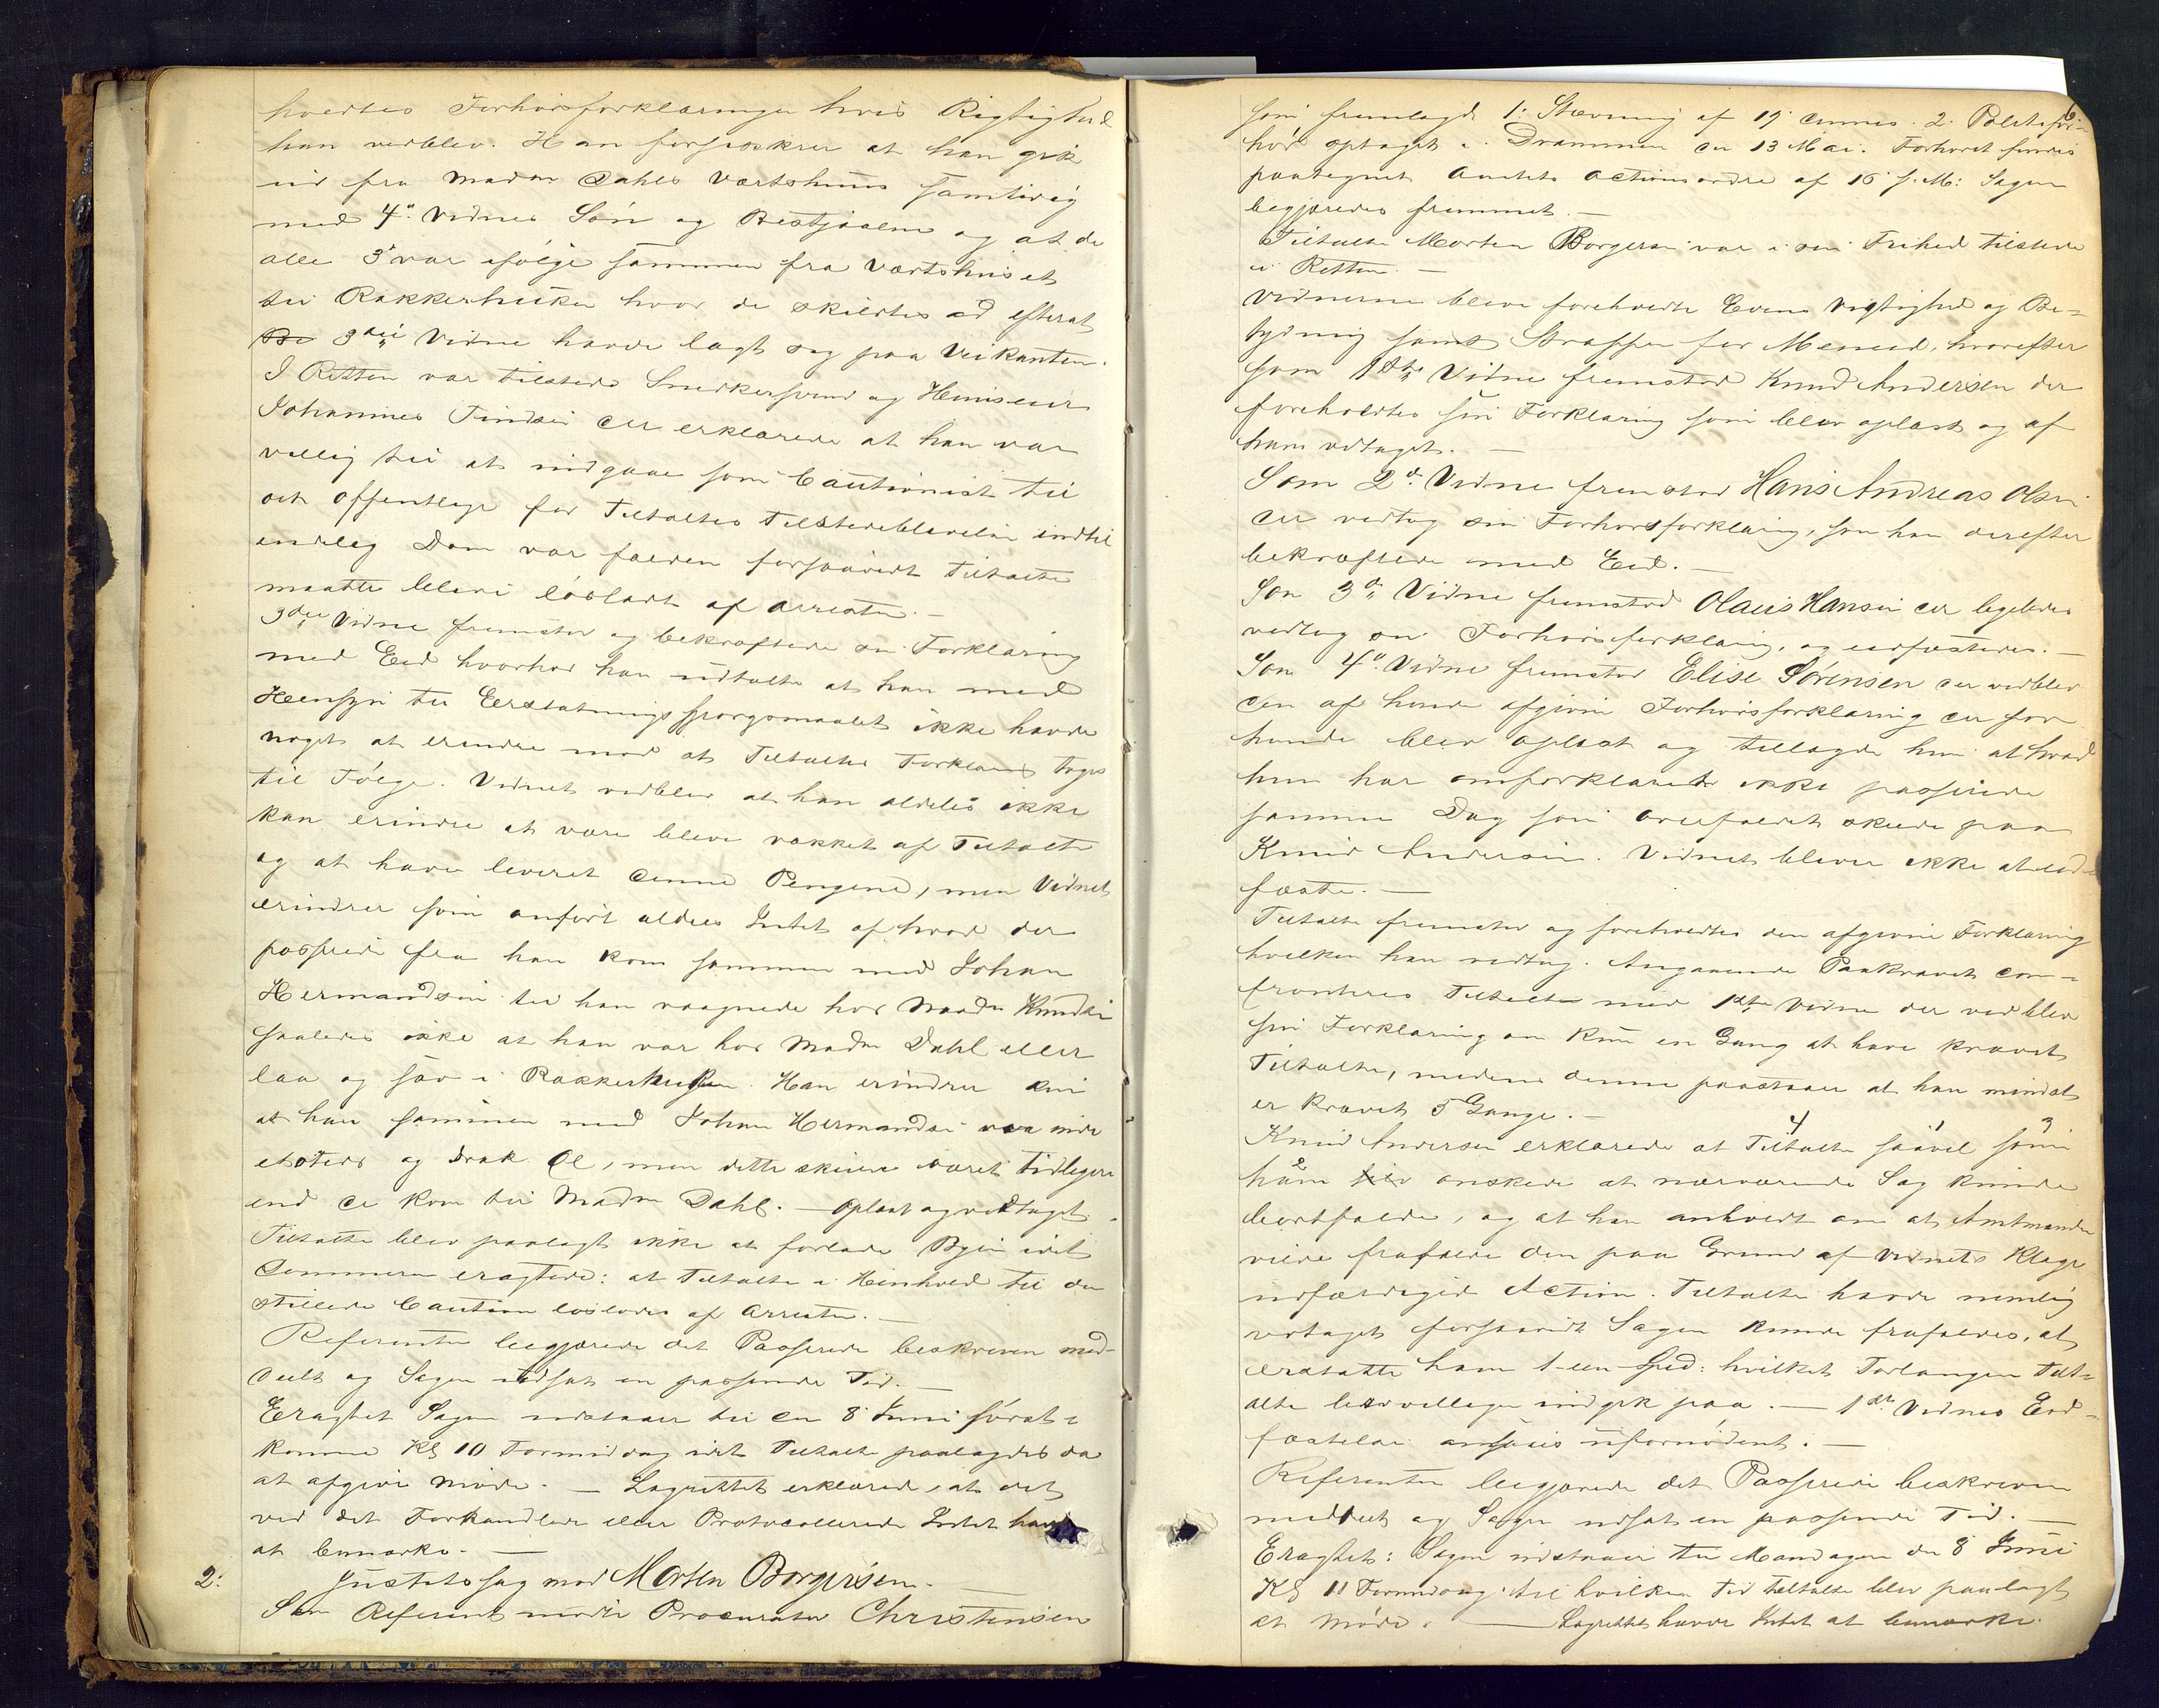 hvertes Forhørsforklaringer hvis Rigtighed
han vedblev. Han forsikrer at han gik
ud fra Madm Dahls Vertshuus samtidig
med 4de Vidnes Søn og Bestjaalne og at de
alle 3 var ifølge sammen fra Vertshuset
til Rakkerhuken hvor de skildtes ad efterat
3die Vidne havde lagt sig paa Veikanten.
I Retten var tilstede Snedkersvend og Huuseier
Johannes Tindsen der erklærede at han var
villig til at indgaae som Cautionist til
det offentlige for Tiltaltes Tilstedeblivelse indtil
endelig Dom var falden forsaavidt Tiltalte
maatte blive løsladt af Arresten. —
3die Vidne fremstod og bekræftede sin Forklaring
med Eed hvorhos han udtalte at han med
Hensyn til Erstatningsspørgsmaalet ikke havde
noget at erindre mod at Tiltaltes Forklaring toges
til Følge. Vidnet vedblev at han aldeles ikke
kan erindre at være bleven vækket af Tiltalte
og at have leveret denne Pengene, men Vidnet
erindrer som anført aldeles Intet af hvad der
passerede fra han kom sammen med Johan
Hermandsen til han vaagnede hos Madm Knudsen
saaledes ikke at han var hos Madm Dahl eller
laa og sov i Rakkerhuken. Han erindrer kun
at han sammen med Johan Hermandsen var inde
etsteds og drak Øl, men dette skulde været tidligere
end de kom til Madm Dahl. — Oplæst og vedtaget.
Tiltalte blev paalagt ikke at forlade Byen idet
Dommeren eragtede: at Tiltalte i Henhold til den
stillede Caution løslades af Arresten. —
Referenten begjærede det Passerede beskreven med-
deelt og Sagen udsat en passende Tid. —
Eragtet Sagen udstaaer til den 8 Juni først-
komme Kl 10 Formiddag idet Tiltalte paalagdes da
at afgive Møde. — Lagrettet erklærede, at det
ved det Forhandlede eller Protocollerede Intet havde
at bemærke. —
2: Justitssag mod Morten Borgersen. —
Som Referent mødte Procurator Christensen
6
som fremlagde 1: Stævning af 19 dennes. 2. Politifor-
hør optaget i Drammen den 13 Mai. Forhøret findes
paategnet Amtets Actionsordre af 16 s. M: Sagen
begjæredes fremmet. —
Tiltalte Morten Borgersen var i sin Frihed tilstede
i Retten. —
Vidnerne bleve foreholdte Edens Vigtighed og Be-
tydning samt Straffen for Meneed, hvorefter
som 1ste Vidne fremstod Knud Andersen der
foreholdtes sin Forklaring som blev oplæst og af
ham vedtaget. —
Som 2det Vidne fremstod Hans Andreas Olsen
der vedtog sin Forhørsforklaring, som han derefter
bekræftede med Eed. —
Som 3die Vidne fremstod Olaus Hansen der ligeledes
vedtog sin Forhørsforklaring, og eedfæstedes. —
Som 4de Vidne fremstod Elise Sørensen der vedblev
den af hende afgivne Forhørsforklaring der for
hende blev oplæst og tillagde hun at hvad
hun har omforklaret ikke passerede
samme Dag som Overfaldet skede paa
Knud Andersen. Vidnet blev ikke at eed-
fæste. —
Tiltalte fremstod og foreholdtes den afgivne Forklaring
hvilken han vedtog. Angaaende Paakravet con-
fronteres Tiltalte med 1ste Vidne der vedblev
sin Forklaring om kun en Gang at have krævet
Tiltalte, medens denne paastaaer at han mindst
er krævet 5 Gange. —
Knud Andersen erklærede at Tiltalte saavel som
han ønskede at nærværende Sag kunde
bortfalde, og at han anholdt om at Amtmanden
vilde frafalde den paa Grund af Vidnets Klage
udfærdigede Action. Tiltalte havde nemlig
vedtaget forsaavidt Sagen kunde frafaldes, at
erstatte ham 1-een Spd: hvilket Forlangen Tilt-
alte beredvilligen indgik paa. — 1ste Vidnes Eed-
fæstelse ansaaes ufornødent. —
Referenten begjærede det Passerede beskreven
meddeelt og Sagen udsat en passende Tid. —
Eragtet: Sagen udstaaer til Mandagen den 8 Juni
Kl 11 Formiddag til hvilken Tid Tiltalte blev paalagt
at møde. — Lagrettet havde Intet at bemærke.